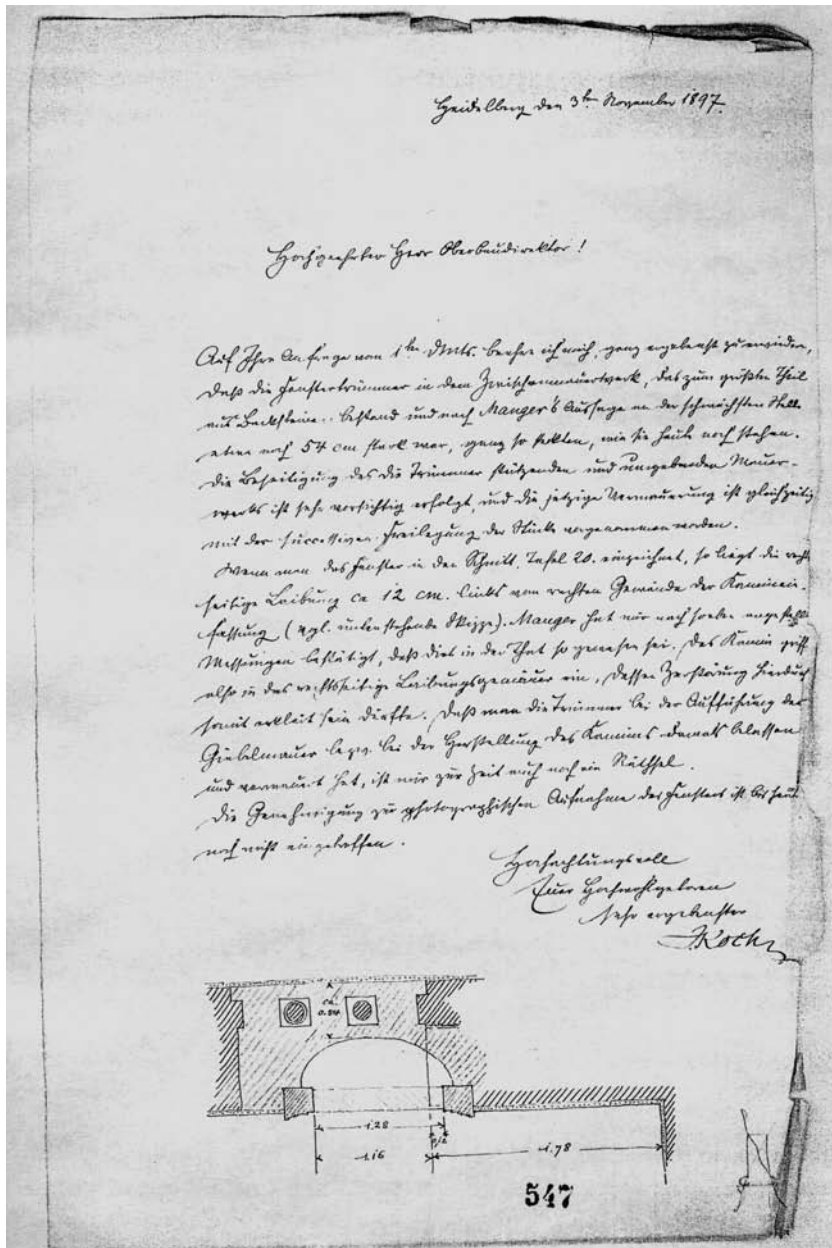 Heidelberg den 3ten November 1897.
Hochgeehrter Herr Oberbaudirektor!
Auf Ihre Anfrage vom 1ten d. Mts. beehre ich mich, ganz ergebenst zu erwidern,
daß die Fenstertrümmer in dem Zwischenmauerwerk, das zum größten Theil
aus Backsteinen bestand und nach Manger's Aussage an der schwächsten Stelle
etwa noch 54 cm stark war, ganz so steckten, wie sie heute noch stehen.
Die Beseitigung des die Trümmer stützenden und umgebenden Mauer-
werks ist sehr vorsichtig erfolgt, und die jetzige Vermauerung ist gleichzeitig
mit der successiven Freilegung der Stücke vorgenommen worden.
Wenn man das Fenster in den Schnitt, Tafel 20. einzeichnet, so liegt die rechts
seitige Laibung ca 12 cm. links vom rechten Gewände der Kamin­ein-
fassung (vgl. untenstehende Skizze). Manger hat mir nach soeben angestellten
Messungen bestätigt, daß dies in der That so gewesen sei. Das Kamin griff
also in das rechtsseitige Laibungsgemäuer ein, dessen Zerstörung hierdurch
somit erklärt sein dürfte. Daß man die Trümmer bei der Aufführung der
Giebelmauer bezw. bei der Herstellung des Kamins damals belassen
und vermauert hat, ist mir zur Zeit auch noch ein Räthsel.
Die Genehmigung zur photographischen Aufnahme des Fensters ist bis heute
noch nicht eingetroffen.
Hochachtungsvoll
Euer Hochwohlgeboren
sehr ergebenster
FKoch
ca.
0.54
1.28
12
1.16
1.78
547